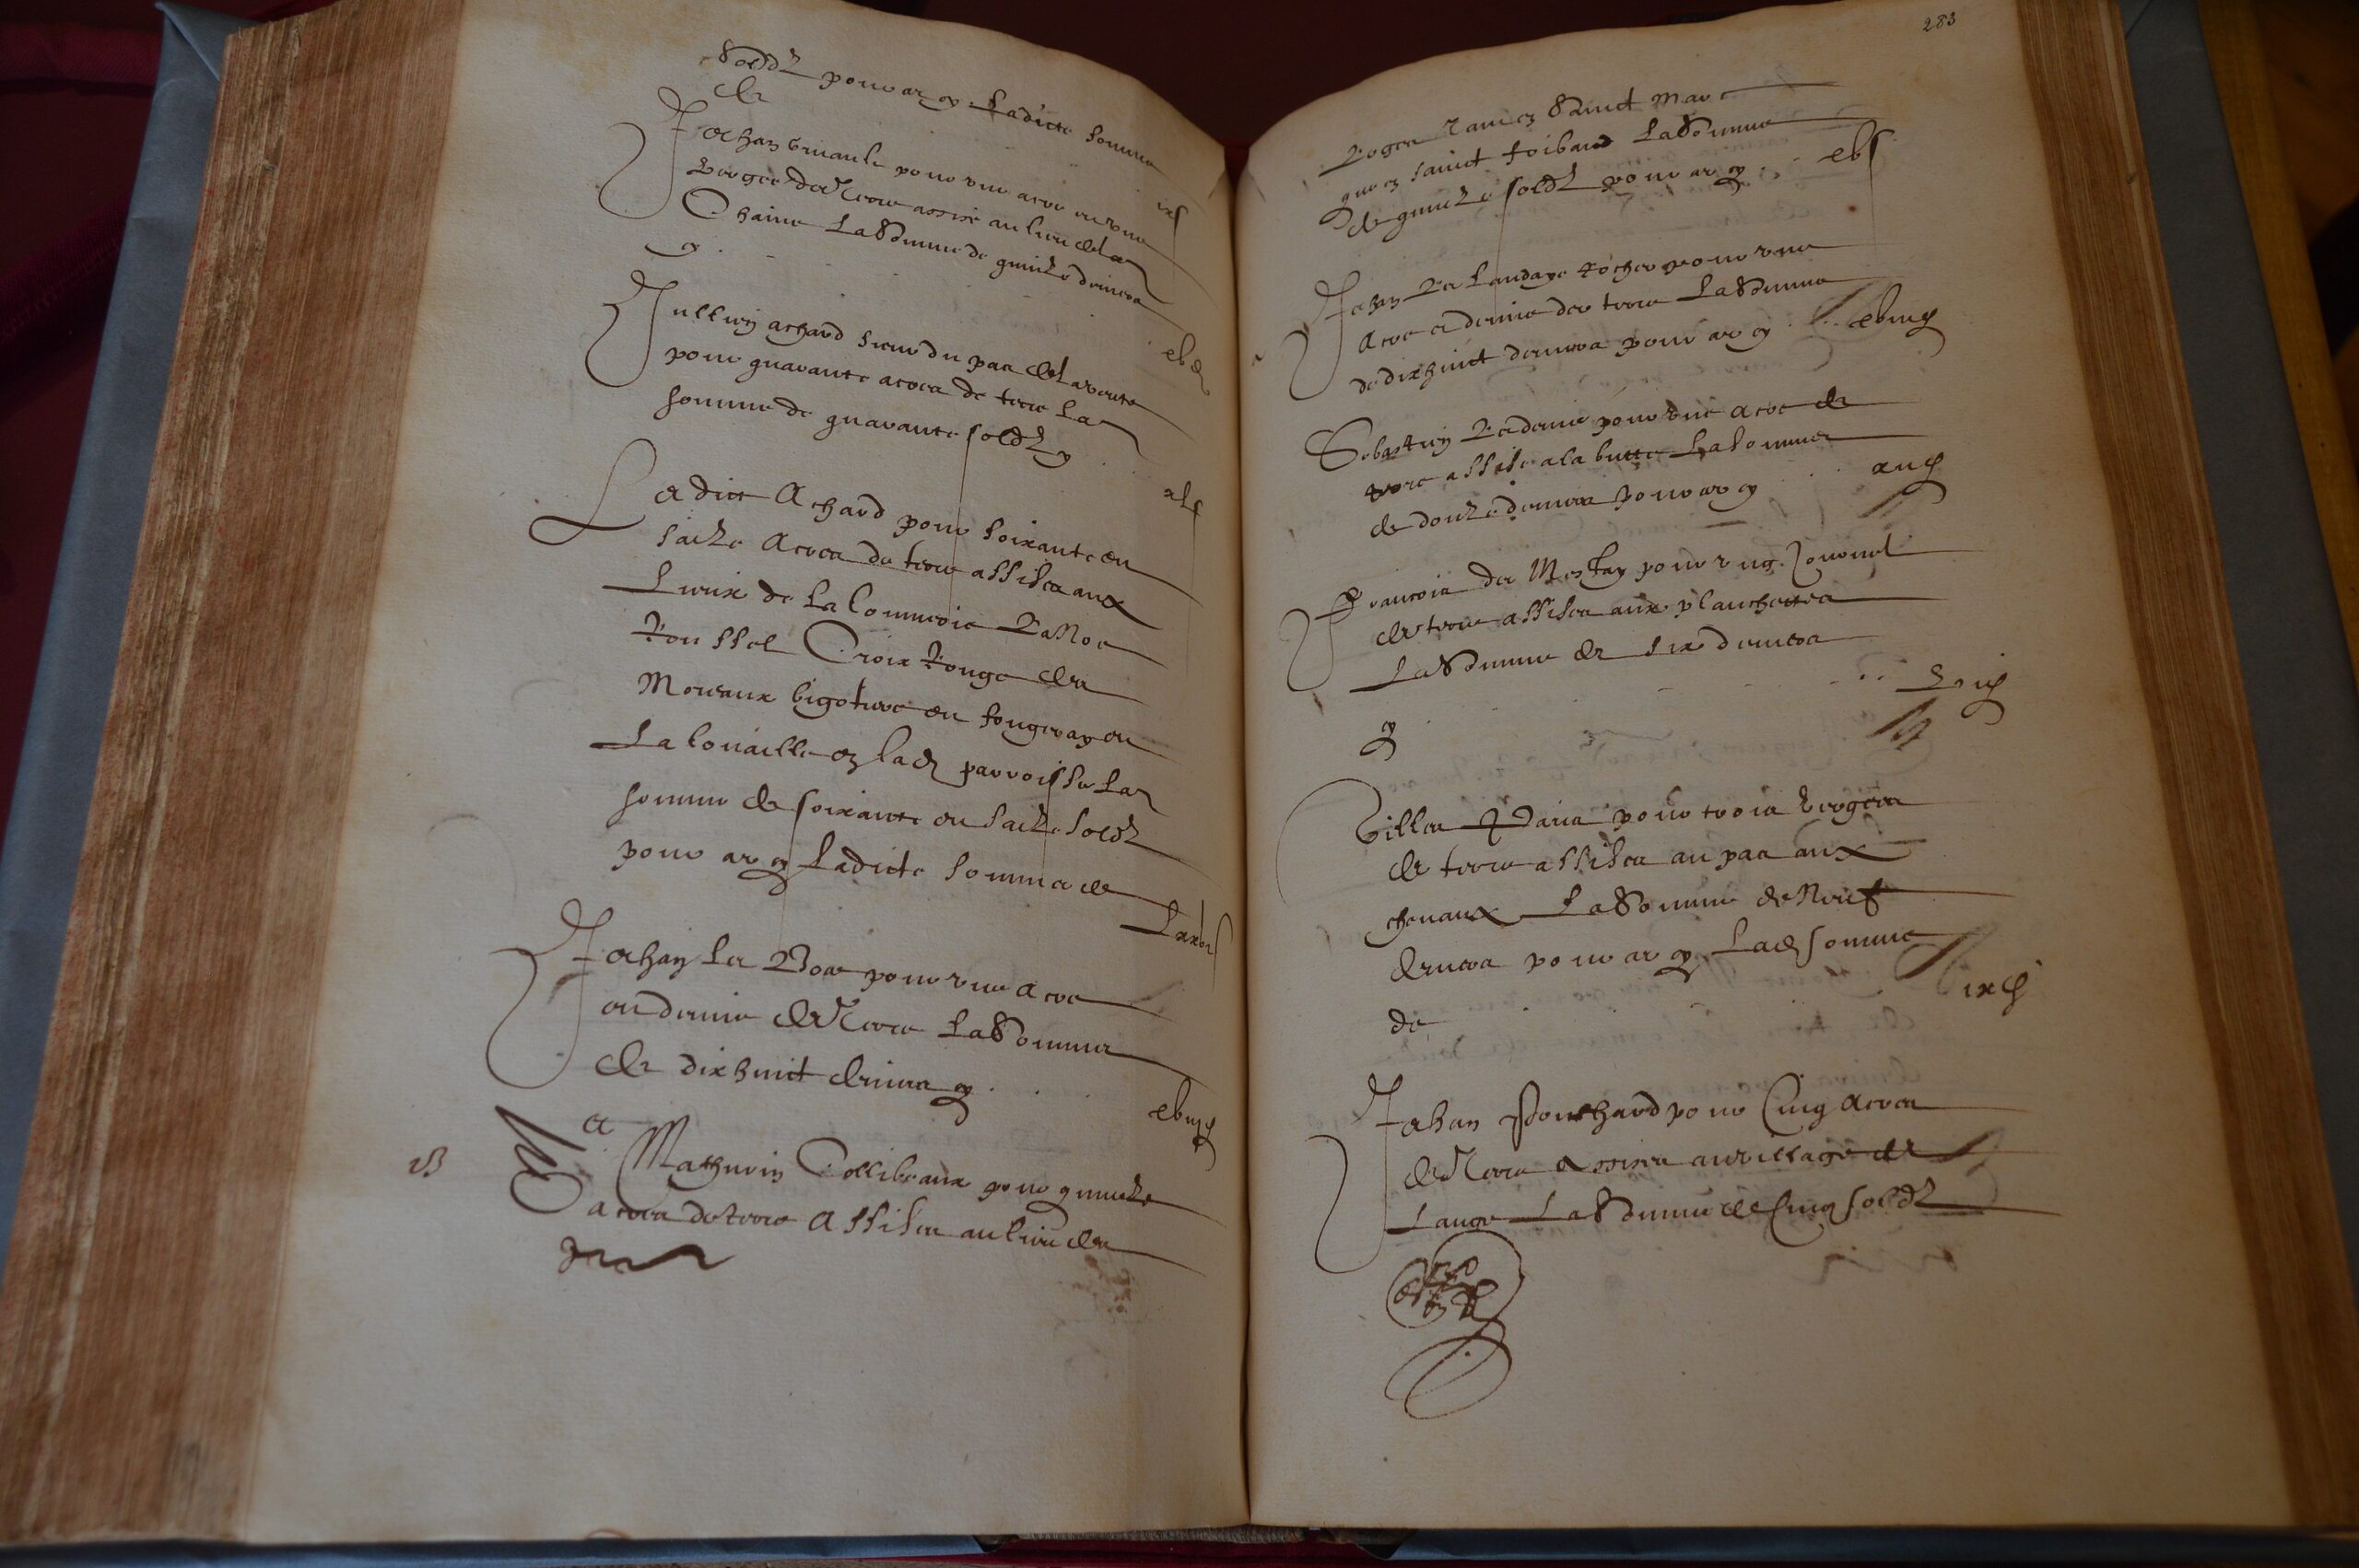 soldz pour ar g ladicte somme
de
ixs
Jehan pour une acre ou une
vergee de terre assise au lieu de la
Chaine La Somme de quinze deniers
g
xvd
Jullien achard sieur du pas de la vente
pour quarante acres de terre La
somme de quarante soldz g
xls
Ledict Achard pour soixante ou
saize Acres de terre assises aux
Lieux de La Commerie La Noe
Roussel Croix Rouge des
Moreaux bigotiere ou fougeray ou
La Couaille en lad parroisse La
somme de soixante ou saize soldz
pour ar g Ladicte Somme de
Lxxvis
Jehan Le pour une acre
ou demie de terre La Somme
de dixhuict deniers g
xviijd
a
Mathurin Collibeaux pour quinze
acres de terre Assises au lieu des
283
Sainct Marc
que en sainct La Somme
de quinze soldz pour ar g
xvs
Jehan De Landaye pour une
Acre et demie de terre La Somme
de dixhuict deniers pour ar g
xviijd
Sebastien pour une acre de
terre assise a la butte La somme
de douze deniers pour ar g
xijd
Francois de pour ung Journal
de terre assises aux planchettes
La Somme de six deniers
g
vjd
Gilles Paris pour trois vergees
de terre assises au pas aux
chevaux La Somme de Neuf
deniers pour ar g Lad somme
de
ixd
Jehan Bouchard pour Cinq Acres
de terre Assises au village de
Lange La Somme de Cinq soldz